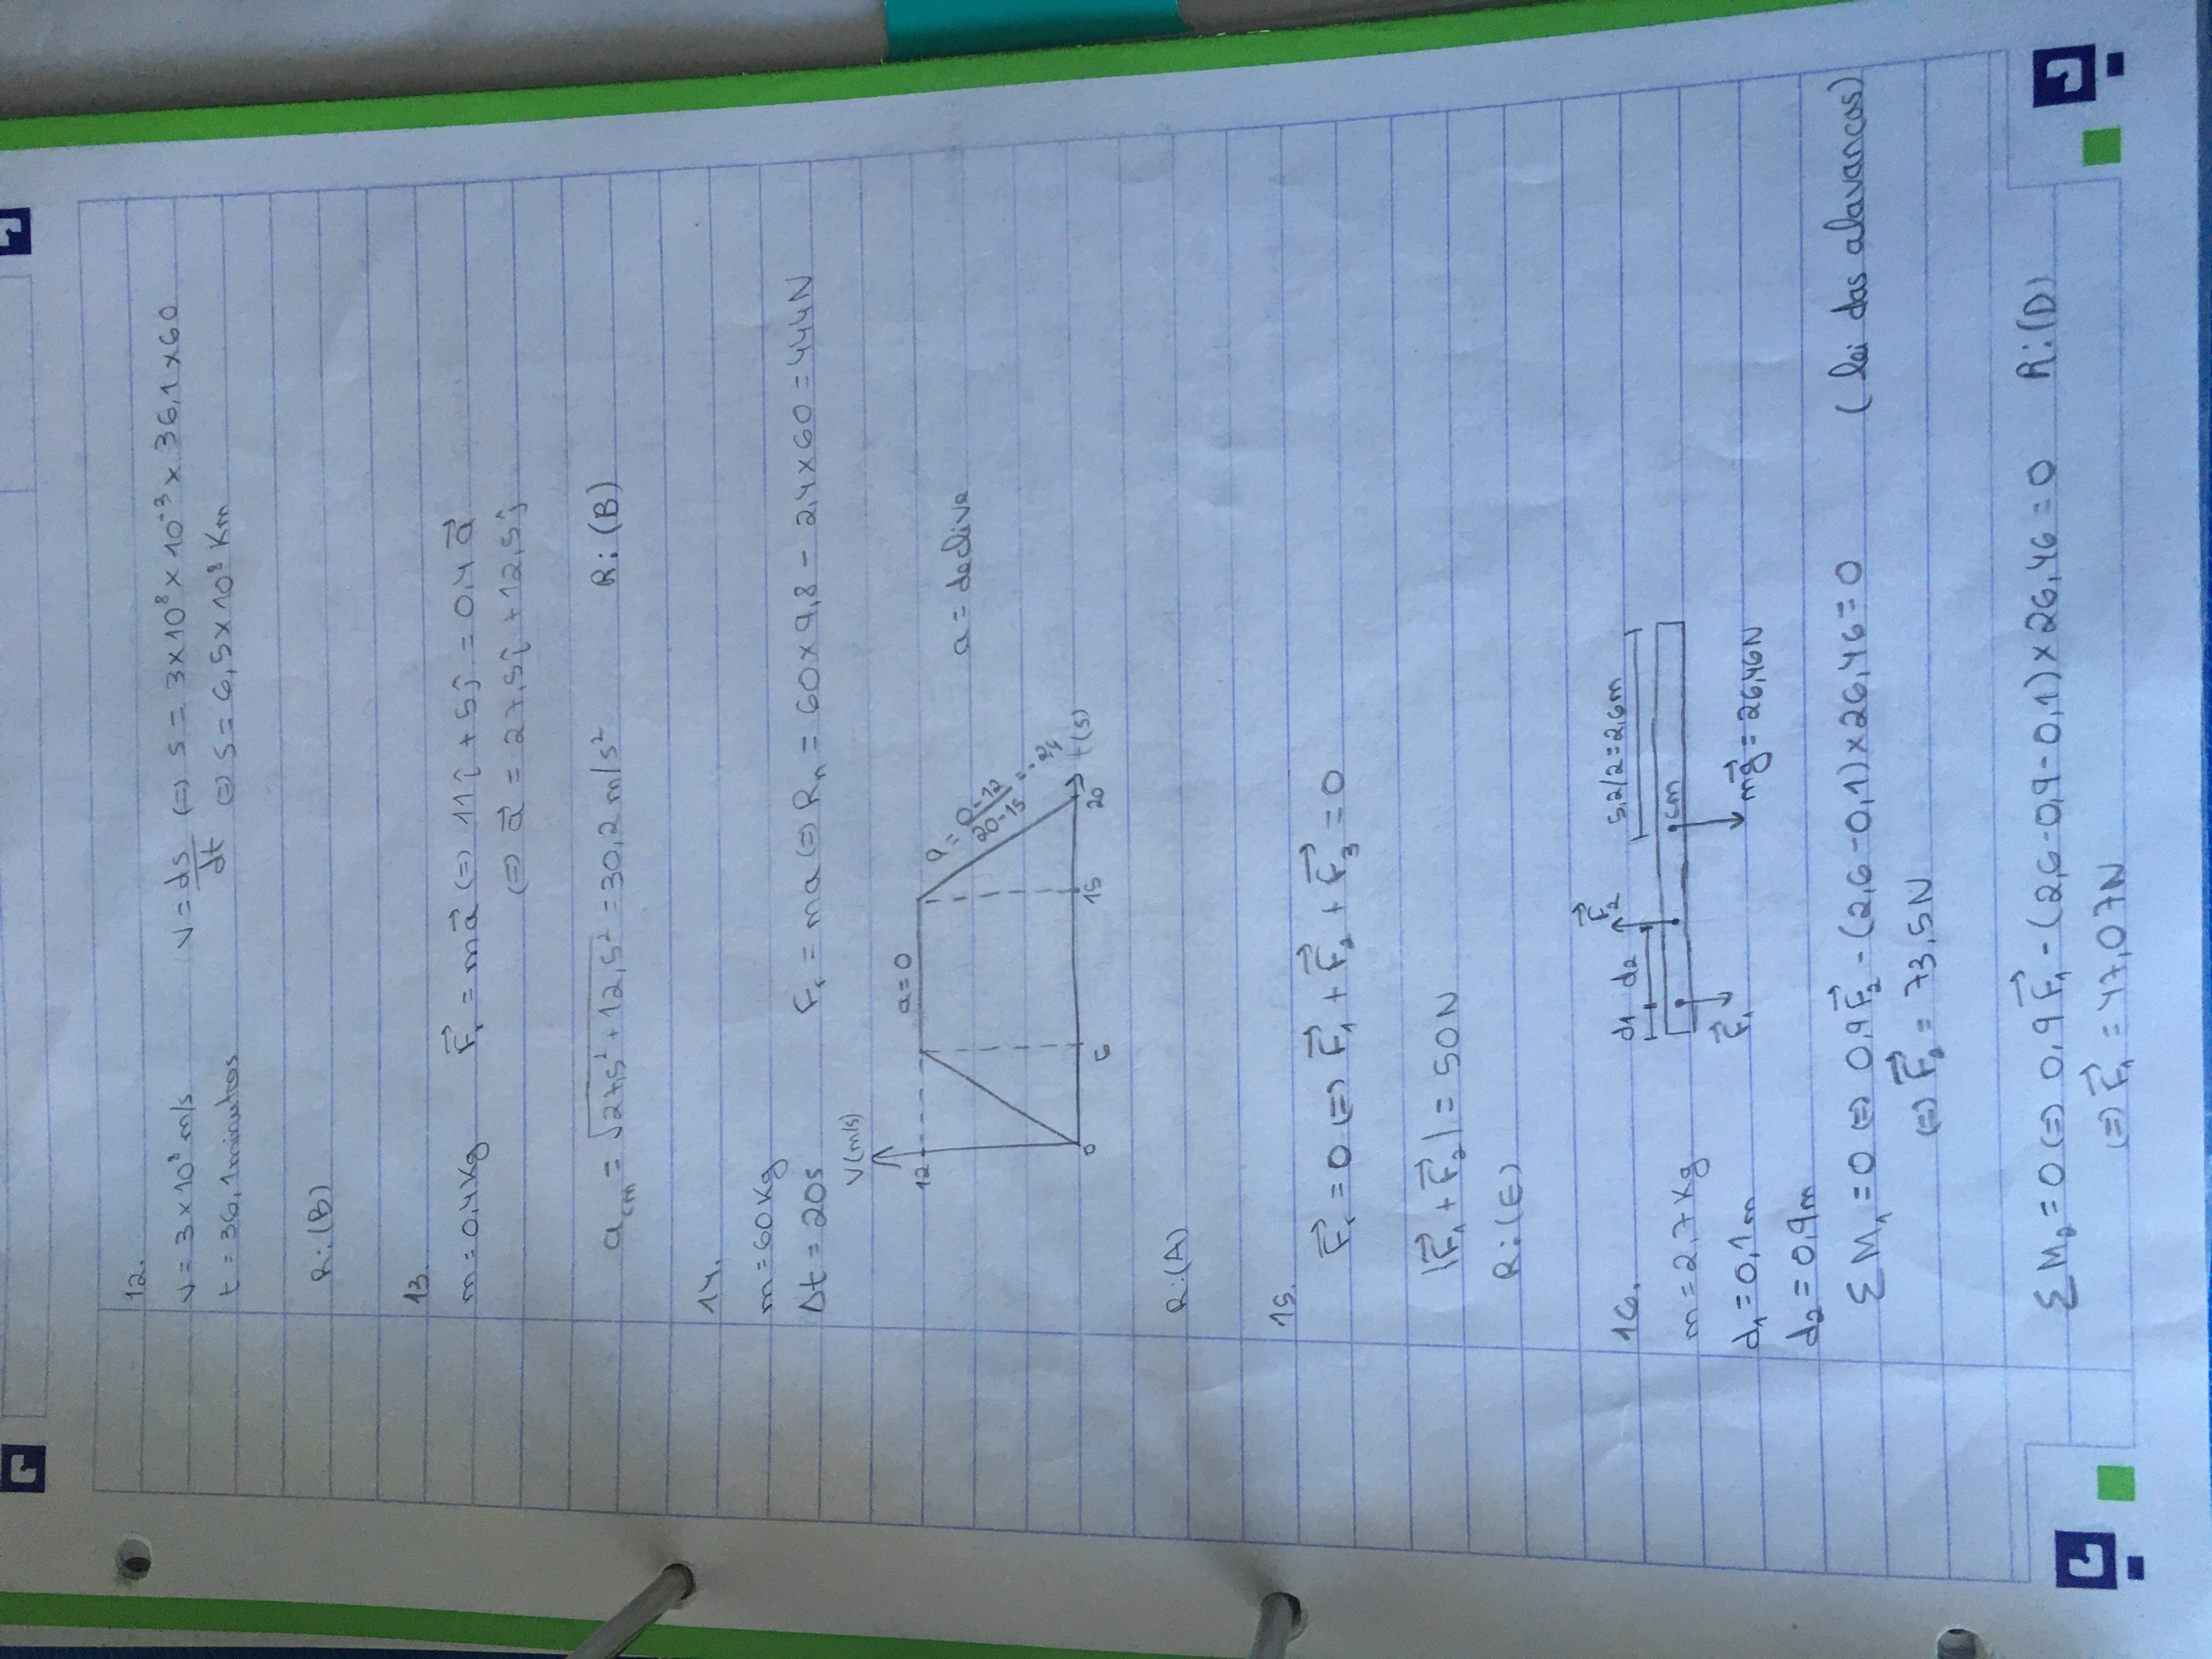 12.
v = 3×10⁸ m/s
t = 36,1 minutos
v = ds/dt (=) s = 3×10⁸ × 10⁻³ × 36,1 × 60
(=) s = 6,5×10⁸ Km
R:(B)
13.
m = 0,4 Kg
F⃗r = ma⃗ (=) 11î + 5ĵ = 0,4 a⃗
(=) a⃗ = 27,5î + 12,5ĵ
a_cm = √(27,5² + 12,5²) = 30,2 m/s²
R:(B)
14.
m = 60 Kg
Δt = 20s
Fr = ma (=) Rn = 60×9,8 − 2,4×60 = 444N
V(m/s)
12
a = 0
a = (0−12)/(20−15) = −2,4
a = declive
0
5
15
20
t(s)
R:(A)
15.
F⃗r = 0 (=) F⃗₁ + F⃗₂ + F⃗₃ = 0
|F⃗₁ + F⃗₂| = 50N
R:(E)
16.
m = 2,7 Kg
d₁ = 0,1m
d₂ = 0,9m
d1
d2
F⃗₂
5,2/2 = 2,6m
cm
F⃗₁
mg⃗ = 26,46N
ΣM₁ = 0 (=) 0,9F⃗₂ − (2,6−0,1)×26,46 = 0 (lei das alavancas)
(=) F⃗₂ = 73,5N
ΣM₂ = 0 (=) 0,9F⃗₁ − (2,6−0,9−0,1)×26,46 = 0
R:(D)
(=) F⃗₁ = 47,07N